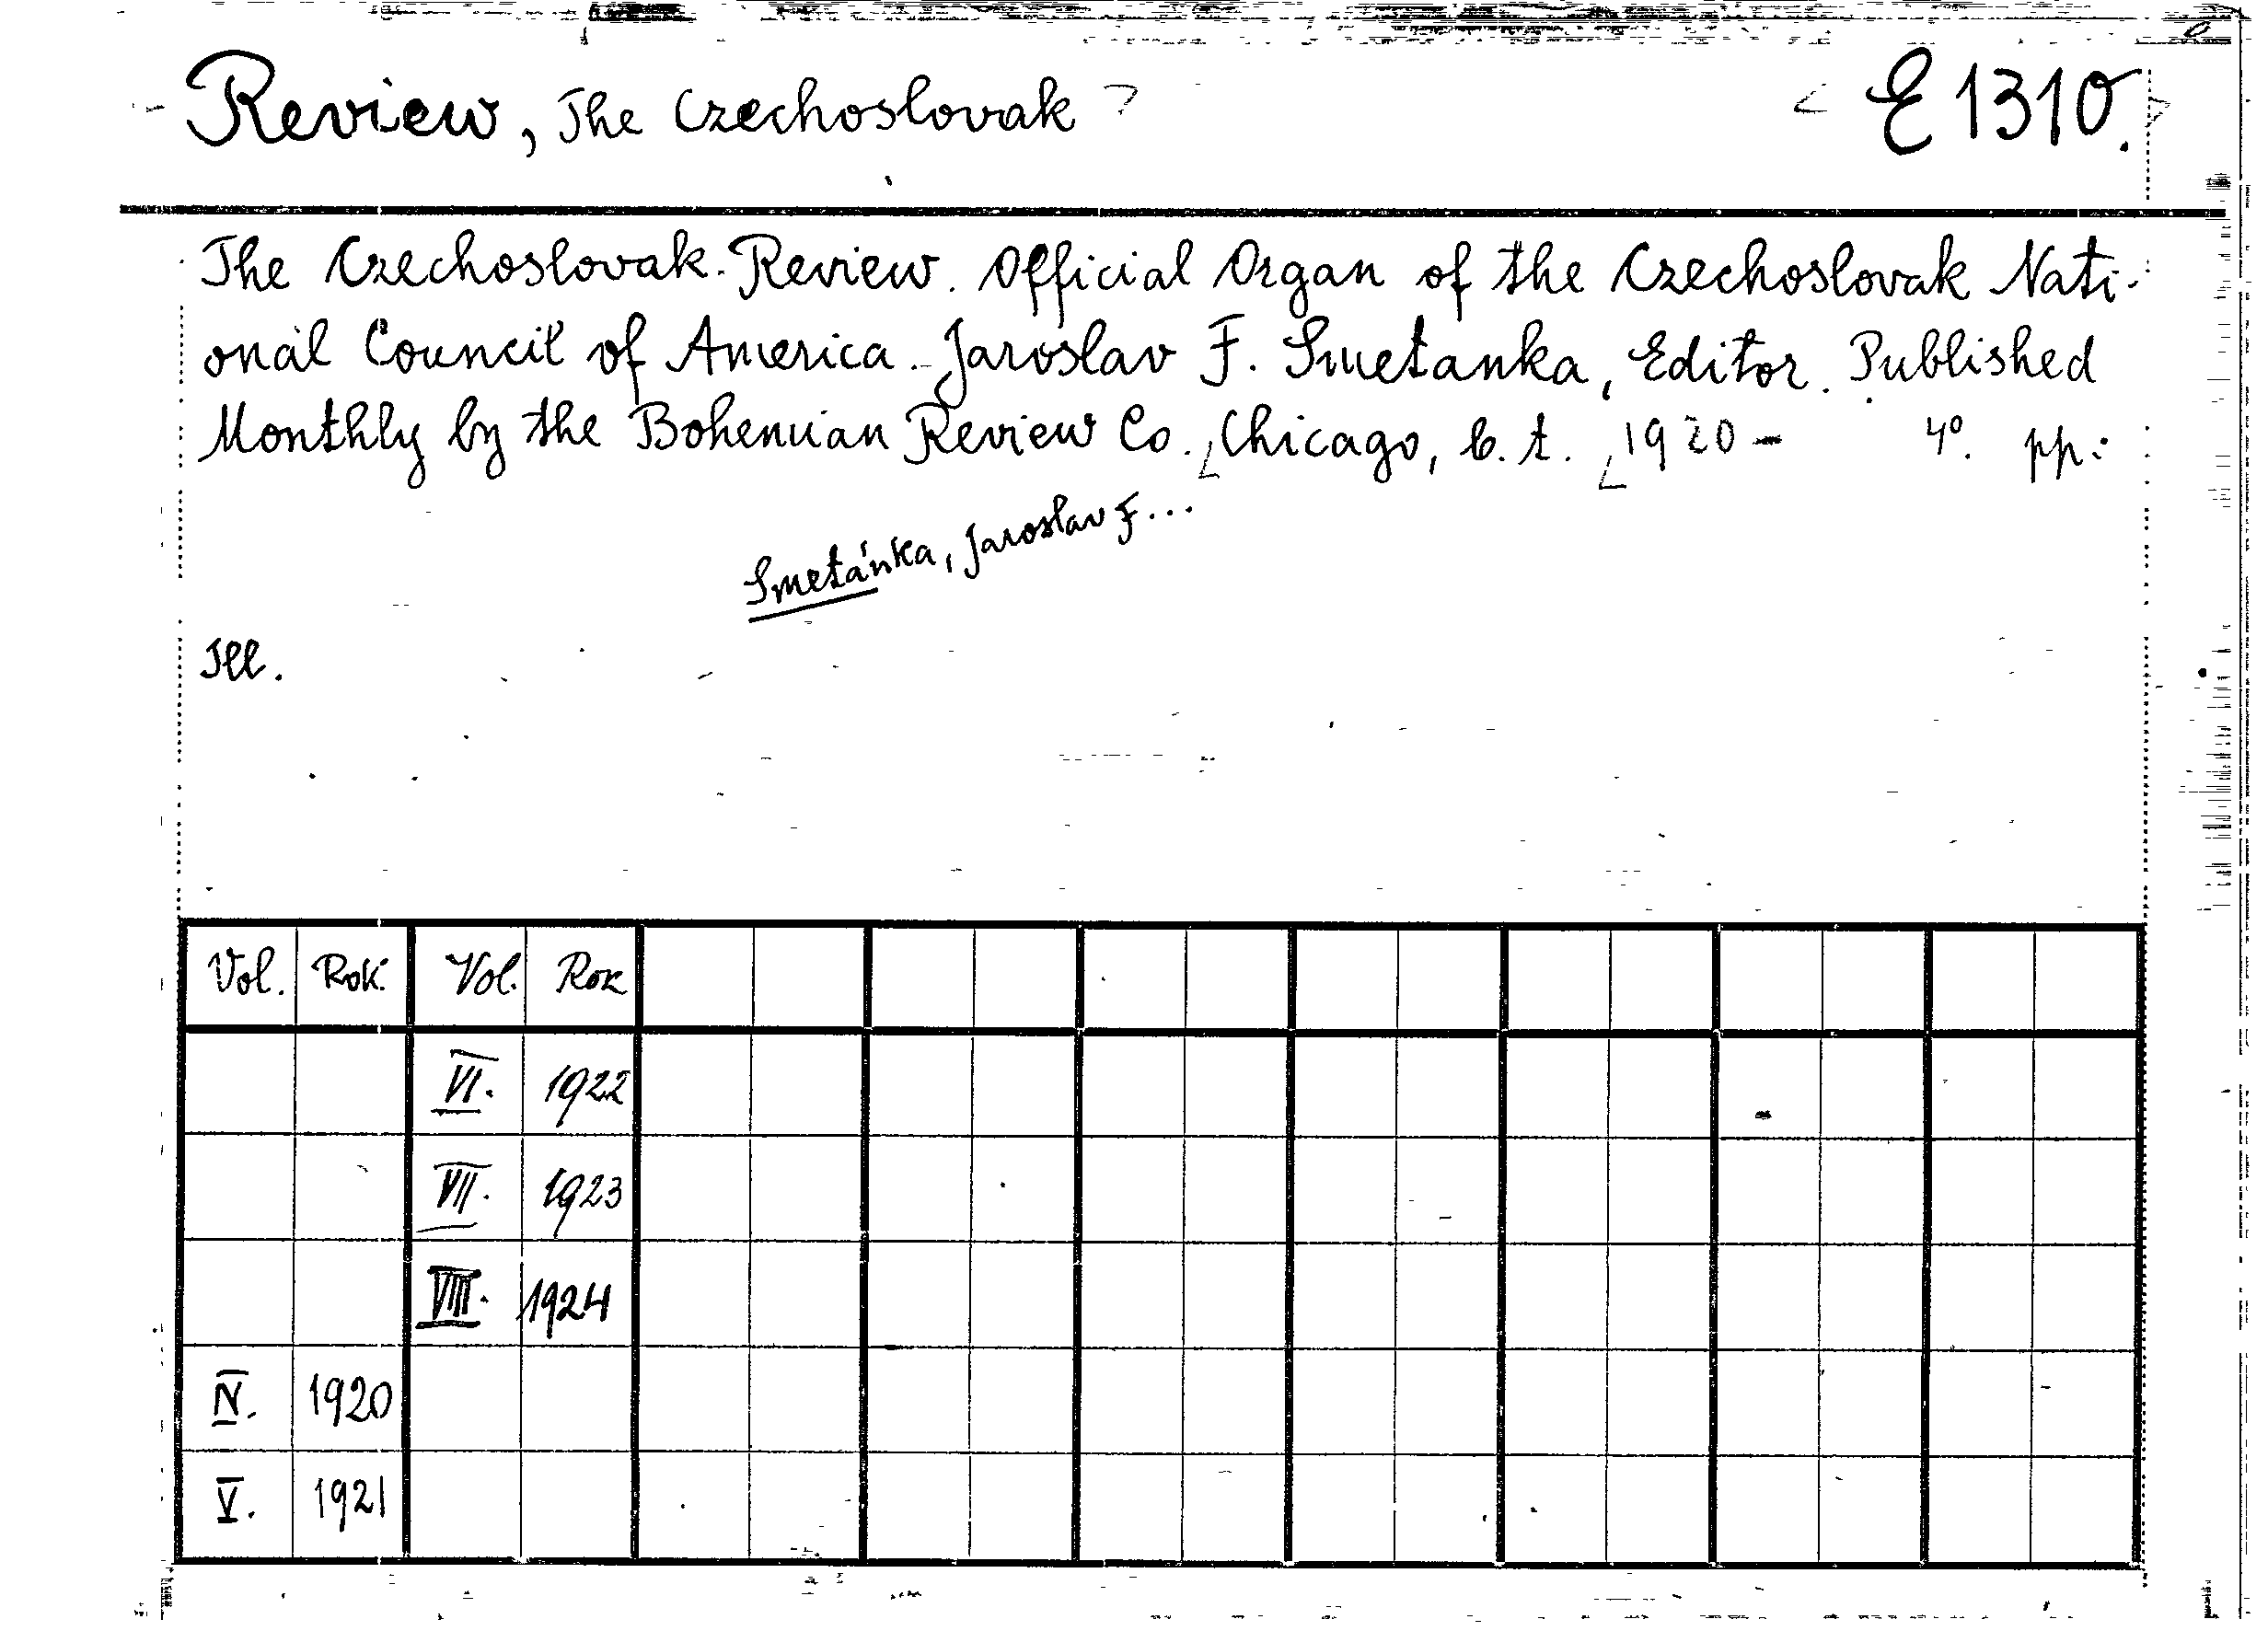 Review, The Czechoslovak E 1310.
The Czechoslovak Review. Official Organ of the Czechoslovak Nati-
onal Council of America. Jaroslav F. Smetanka, Editor. Published
Monthly by the Bohemian Review Co., Chicago, b. t. 1920- 4°. pp.
Smetánka, Jaroslav F...
Ill.
Vol. Rok. Vol. Rok
VI. 1922
VII. 1923
VIII. 1924
IV. 1920
V. 1921